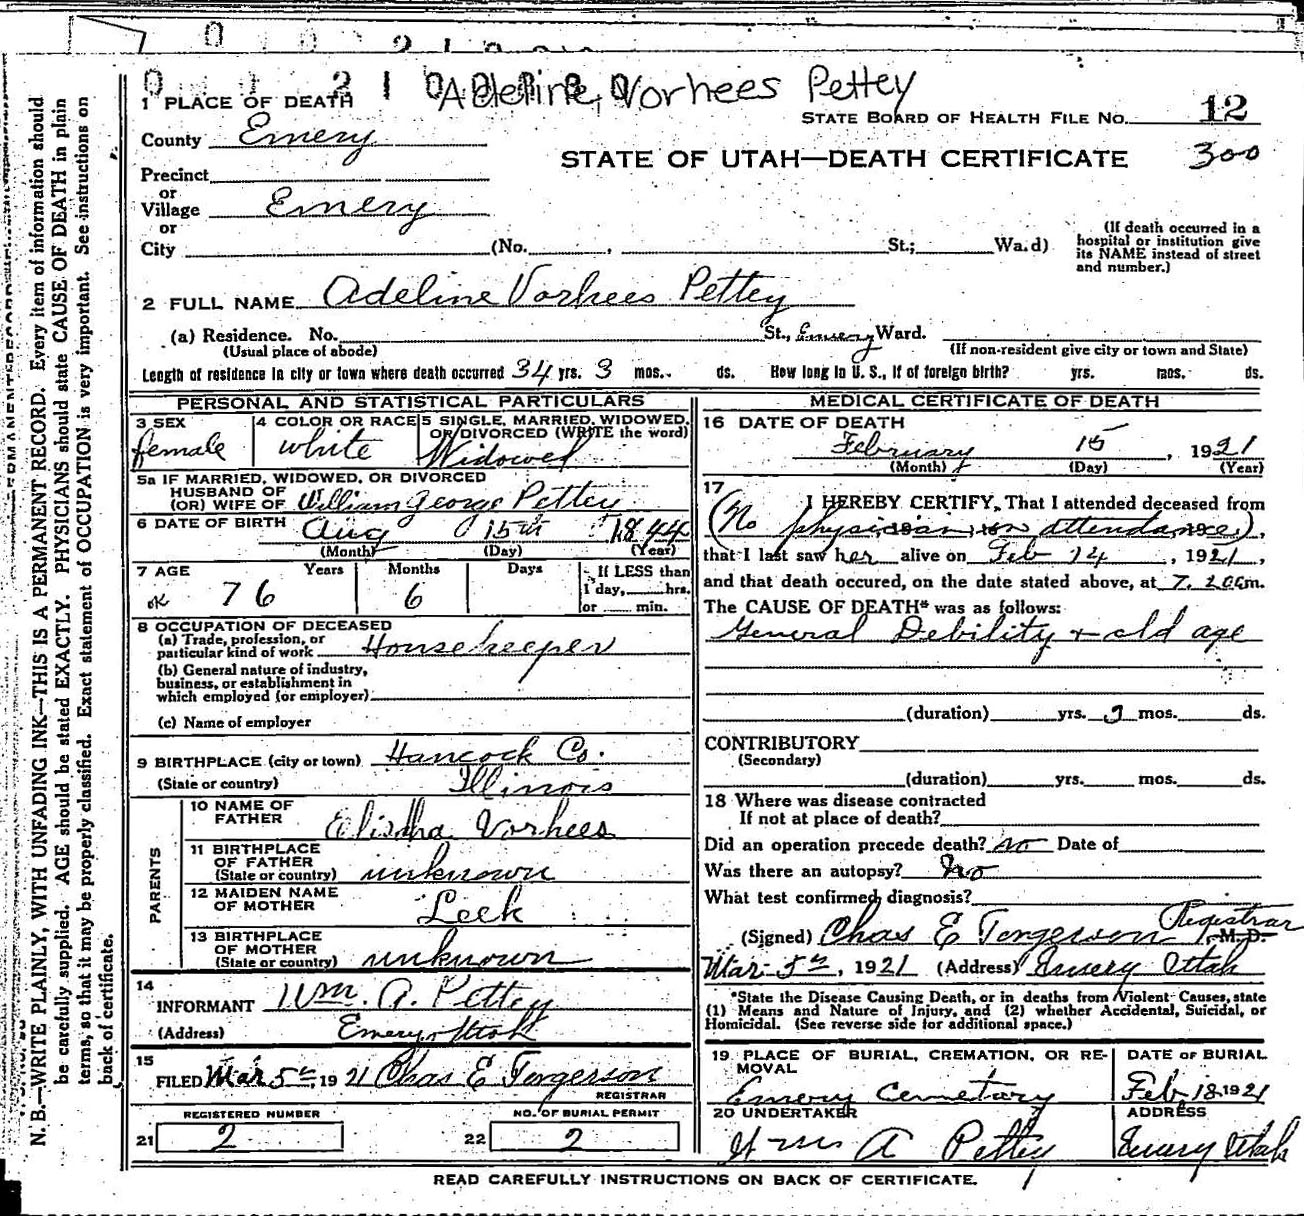 0 2 1 0
Adeline Vorhees Pettey
1 PLACE OF DEATH
STATE BOARD OF HEALTH FILE No. 12
County Emery
STATE OF UTAH—DEATH CERTIFICATE 300
Precinct
or
Village Emery
or
City (No. , St.; Wa.d)
(If death occurred in a
hospital or institution give
its NAME instead of street
and number.)
2 FULL NAME Adeline Vorhees Pettey
(a) Residence. No. St., Emery Ward.
(Usual place of abode) (If non-resident give city or town and State)
Length of residence in city or town where death occurred 34 yrs. 3 mos. ds. How long in U. S., if of foreign birth? yrs. mos. ds.
PERSONAL AND STATISTICAL PARTICULARS
3 SEX
female
4 COLOR OR RACE
white
5 SINGLE, MARRIED, WIDOWED,
OR DIVORCED (WRITE the word)
Widowed
5a IF MARRIED, WIDOWED, OR DIVORCED
HUSBAND OF
(OR) WIFE OF William George Pettey
6 DATE OF BIRTH Aug 15th 1844
(Month) (Day) (Year)
7 AGE Years Months Days
ok 76 6
If LESS than
1 day, hrs.
or min.
8 OCCUPATION OF DECEASED
(a) Trade, profession, or
particular kind of work Housekeeper
(b) General nature of industry,
business, or establishment in
which employed (or employer)
(c) Name of employer
9 BIRTHPLACE (city or town) Hancock Co.
(State or country) Illinois
PARENTS
10 NAME OF
FATHER Elisha Vorhees
11 BIRTHPLACE
OF FATHER
(State or country) unknown
12 MAIDEN NAME
OF MOTHER Leek
13 BIRTHPLACE
OF MOTHER
(State or country) unknown
14
INFORMANT Wm. A. Pettey
(Address) Emery, Utah
15
FILED Mar 5th, 1921 Chas E Torgerson
REGISTRAR
REGISTERED NUMBER NO. OF BURIAL PERMIT
21 2 22 2
MEDICAL CERTIFICATE OF DEATH
16 DATE OF DEATH
February 15, 1921
(Month) (Day) (Year)
17
I HEREBY CERTIFY, That I attended deceased from
(No physician in attendance),
that I last saw her alive on Feb 14, 1921,
and that death occured, on the date stated above, at 7.20 am.
The CAUSE OF DEATH* was as follows:
General Debility & old age
(duration) yrs. 3 mos. ds.
CONTRIBUTORY
(Secondary)
(duration) yrs. mos. ds.
18 Where was disease contracted
If not at place of death?
Did an operation precede death? no Date of
Was there an autopsy? No
What test confirmed diagnosis?
Registrar
(Signed) Chas E Torgerson, M.D.
Mar 5th, 1921 (Address) Emery Utah
*State the Disease Causing Death, or in deaths from Violent Causes, state
(1) Means and Nature of Injury, and (2) whether Accidental, Suicidal, or
Homicidal. (See reverse side for additional space.)
19 PLACE OF BURIAL, CREMATION, OR RE-
MOVAL
Emery Cemetary
DATE OF BURIAL
Feb 18 1921
20 UNDERTAKER
Wm A Pettey
ADDRESS
Emery Utah
READ CAREFULLY INSTRUCTIONS ON BACK OF CERTIFICATE.
N. B.—WRITE PLAINLY, WITH UNFADING INK—THIS IS A PERMANENT RECORD. Every item of information should
be carefully supplied. AGE should be stated EXACTLY. PHYSICIANS should state CAUSE OF DEATH in plain
terms, so that it may be properly classified. Exact statement of OCCUPATION is very important. See instructions on
back of certificate.